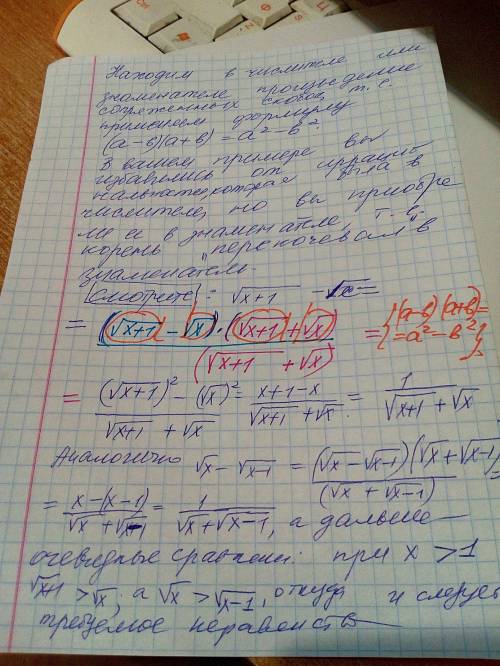 Находим в числителе или
знаменателе произведение
сопряженных скобок, т. е.
применяем формулу
(a-b)(a+b) = a² - b².
В вашем примере вы
избавились от иррацио
нальности, которая была в
числителе, но вы приобре
ли ее в знаменателе, т. е.
корень "перекочевал" в
знаменатель.
Смотрите: √x+1 - √x =
= (√x+1 - √x)·(√x+1 + √x) / (√x+1 + √x) = {(a-b)(a+b)= =a²-b²}
= (√x+1)² - (√x)² / √x+1 + √x = x+1-x / √x+1 + √x = 1 / √x+1 + √x
Аналогично √x - √x-1 = (√x - √x-1)(√x + √x-1) / (√x + √x-1) =
= x-(x-1) / √x + √x-1 = 1 / √x + √x-1, а дальше
очевидные сравнения: при x > 1
√x+1 > √x, а √x > √x-1, откуда и следует
требуемое неравенство